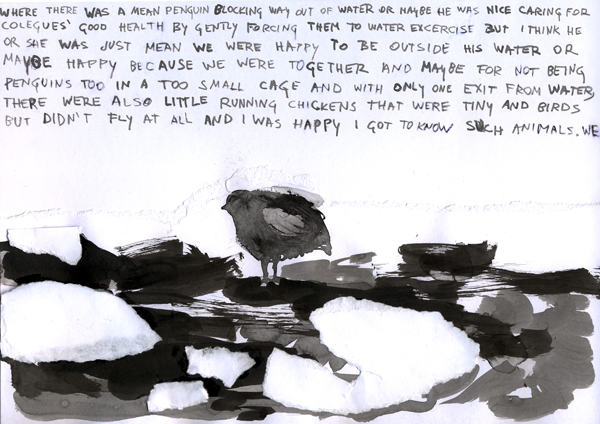 WHERE THERE WAS A MEAN PENGUIN BLOCKING WAY OUT OF WATER OR MAYBE HE WAS NICE CARING FOR
COLEGUES' GOOD HEALTH BY GENTLY FORCING THEM TO WATER EXCERCISE BUT I THINK HE
OR SHE WAS JUST MEAN WE WERE HAPPY TO BE OUTSIDE HIS WATER OR
MAYBE HAPPY BECAUSE WE WERE TOGETHER AND MAYBE FOR NOT BEING
PENGUINS TOO IN A TOO SMALL CAGE AND WITH ONLY ONE EXIT FROM WATER,
THERE WERE ALSO LITTLE RUNNING CHICKENS THAT WERE TINY AND BIRDS
BUT DIDN'T FLY AT ALL AND I WAS HAPPY I GOT TO KNOW SUCH ANIMALS. WE